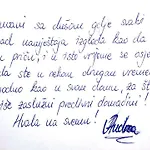 mani sa dušom gdje svaki
ad namještaja izgleda kao da
u priču, i u isto vrijeme se osje
da ste u nekom drugom vreme
odno kao u svom domu, za št
iše zaslužni predivni domaćini!
Hvala na svemu!